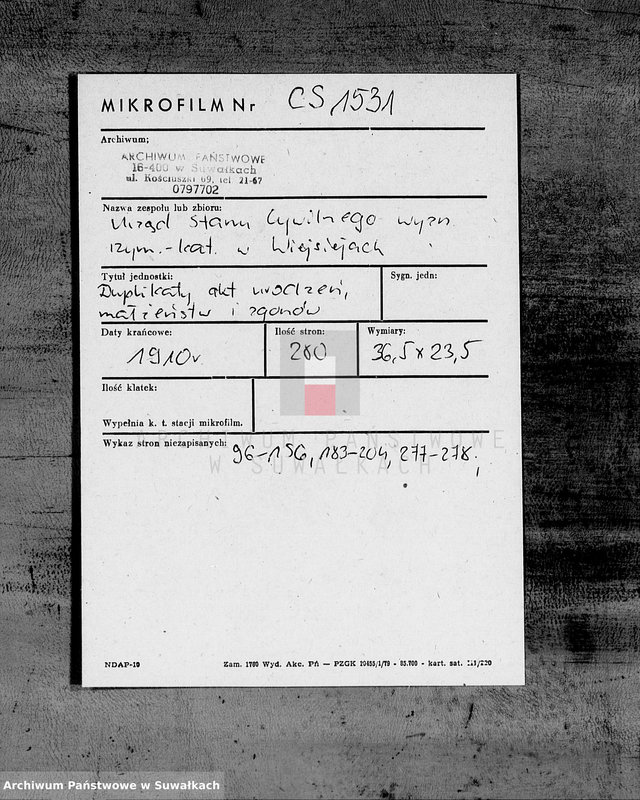 MIKROFILM Nr CS 1531
Archiwum;
ARCHIWUM PAŃSTWOWE
16-400 w Suwałkach
ul. Kościuszki 69, tel. 21-67
0797702
Nazwa zespołu lub zbioru:
Urząd Stanu Cywilnego wyzn.
rzym.-kat. w Wiejsiejach
Tytuł jednostki:
Sygn. jedn:
Duplikaty akt urodzeń,
małżeństw i zgonów
Daty krańcowe:
Ilość stron:
Wymiary:
1910r
280
36,5 x 23,5
Ilość klatek:
Wypełnia k. t. stacji mikrofilm.
Wykaz stron niezapisanych:
96-156, 183-204, 277-278.
ARCHIWUM PAŃSTWOWE
W SUWAŁKACH
NDAP-10
Zam. 1760 Wyd. Akc. Pń — PZGK - 85.700 - kart. sat.
Archiwum Państwowe w Suwałkach